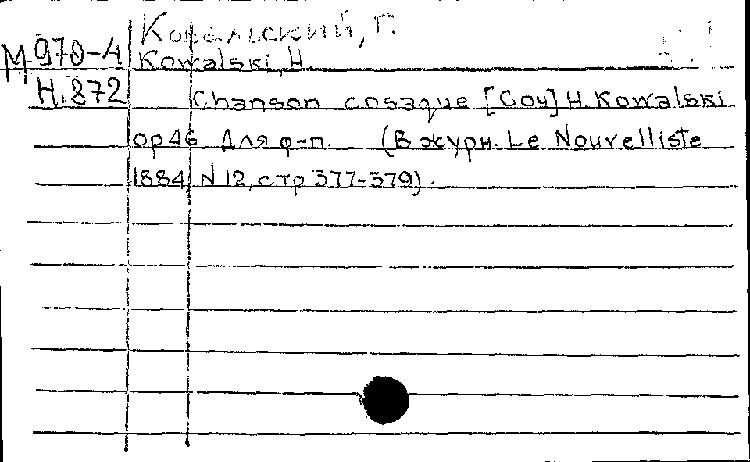 Ковальский, Г.
М 970-4 Kowalski, H.
Н.872 Chanson cosaque [Соч] H. Kowalski
op 46 Для ф-п. (В журн. Le Nouvelliste
1884, N 12, стр 377-379).